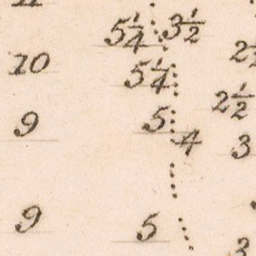 5¼ 3½
10 5¼
2½
9 5 4 3
9 5
3